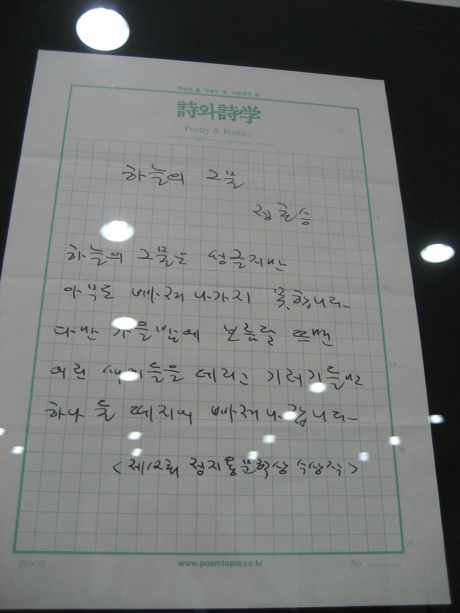 詩와詩学
Poetry & Poetics
하늘의 그물
정호승
하늘의 그물은 성글지만
아무도 빠져나가지 못합니다
다만 가을밤에 보름달 뜨면
어린 새끼들을 데리고 기러기들만
하나 둘 떼지어 빠져나갑니다
<제12회 정지용문학상 수상작>
15
25
20×25
www.poemtopia.co.kr
No.